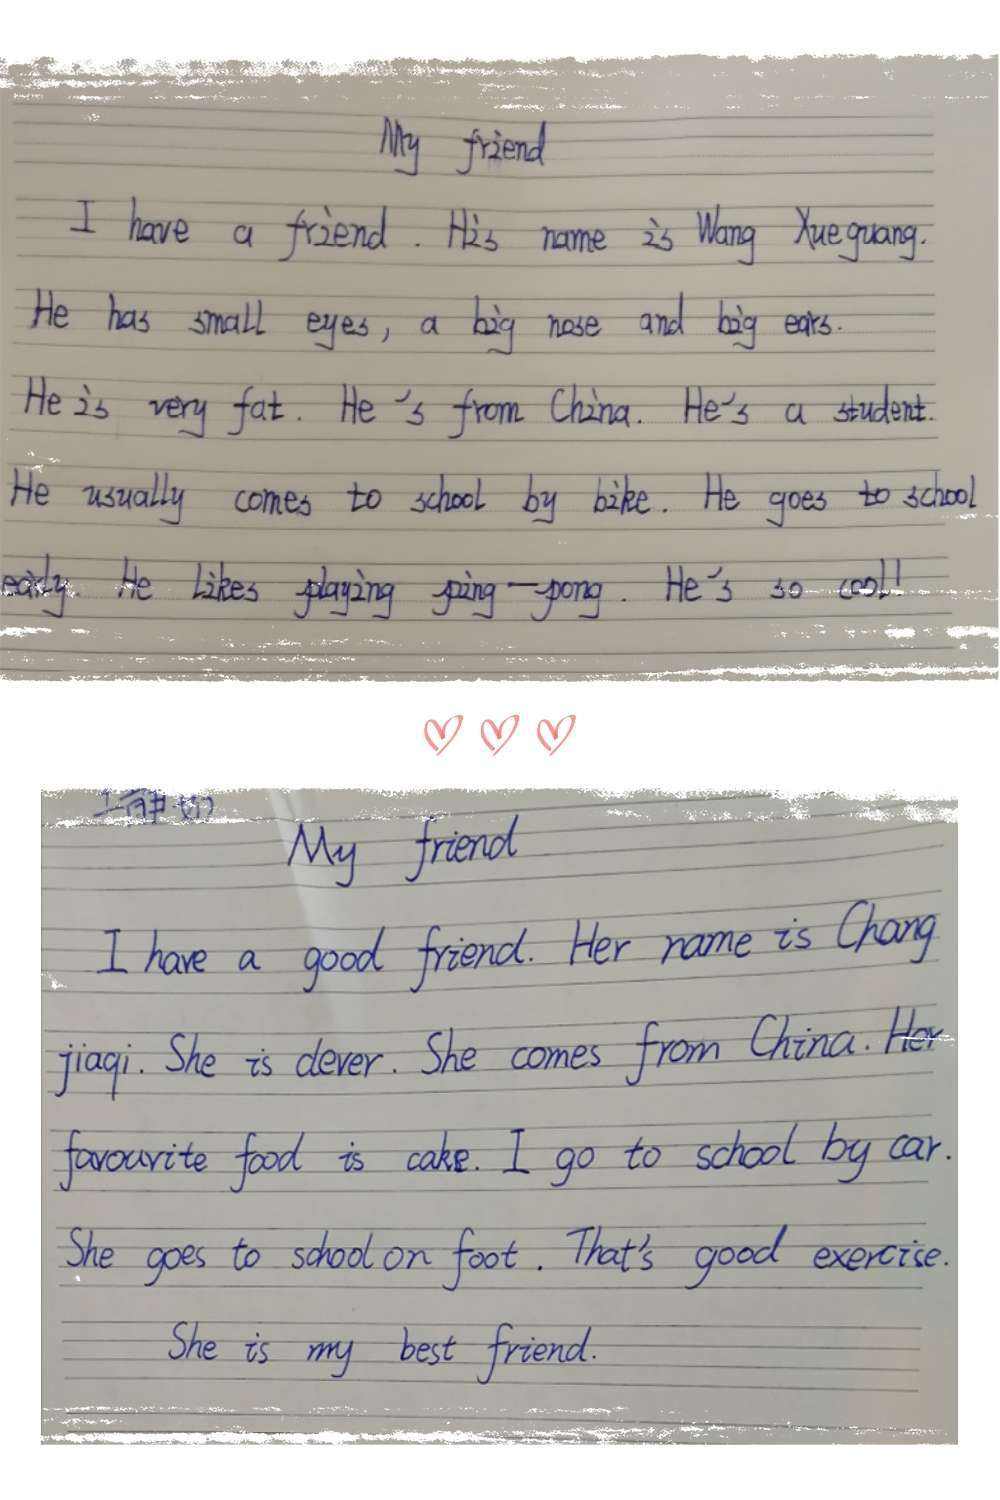 My friend
I have a friend. His name is Wang Xueguang.
He has small eyes, a big nose and big ears.
He is very fat. He's from China. He's a student.
He usually comes to school by bike. He goes to school
early. He likes playing ping-pong. He's so cool!
My friend
I have a good friend. Her name is Chang
jiaqi. She is clever. She comes from China. Her
favourite food is cake. I go to school by car.
She goes to school on foot. That's good exercise.
She is my best friend.